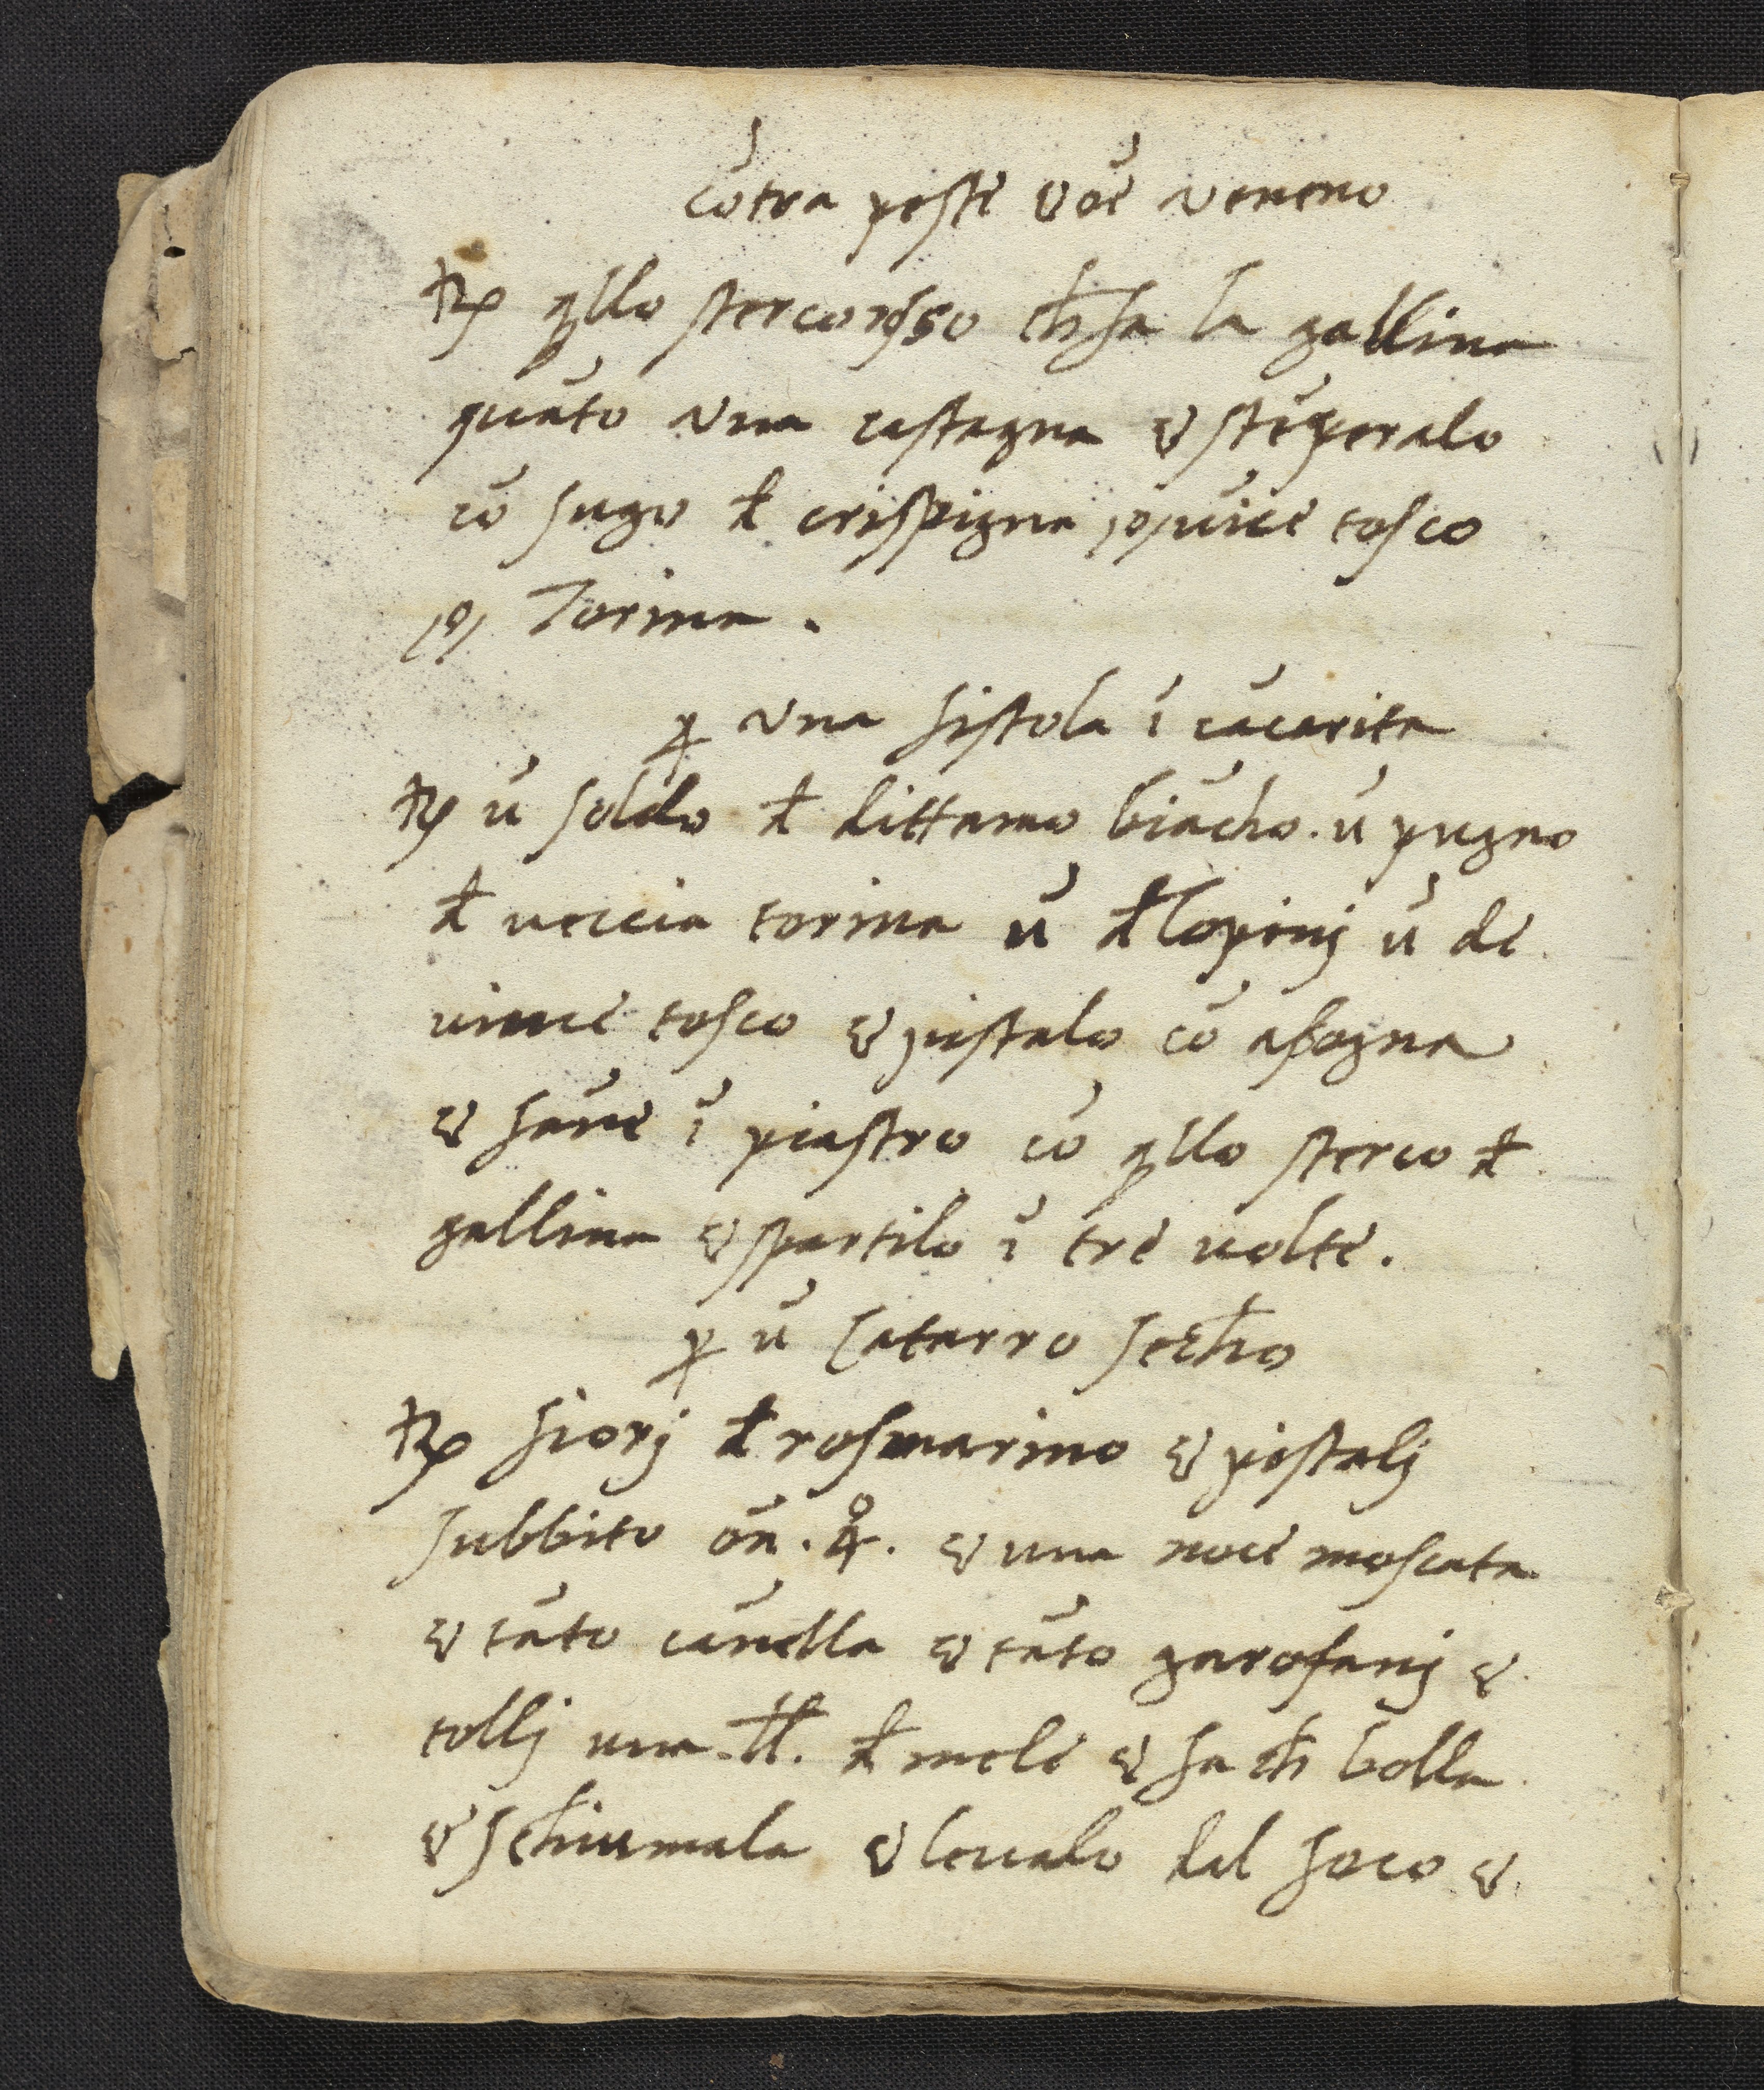 cō̃tra peste & oē veneno
℞ qllo sterco rosso ch̄ fa la gallina
quāto vna castagna & stēperalo
cō sugo đ crispigna, o, uīce tosco
,o, Torina.
ꝑ vna fistola ī cācarita
℞ ū soldo đ dittamo biācho. ū pugno
đ veccia torina ū đ lopinj ū de
vince tosco & pistalo cō asogna
& fāne ī piastro cō qllo sterco đ
gallina & spartilo ī tre uolte.
ꝑ ū catarro sech̄o
℞ fiorj đ rosmarino & pistalj
subbito on̄. 4°. & una noce moscata
& tāto cānella & tāto garofanj &
tollj una ł̶ł̶. đ mele & fa ch̄ bolla
& sch̄iumala & leualo dal foco &